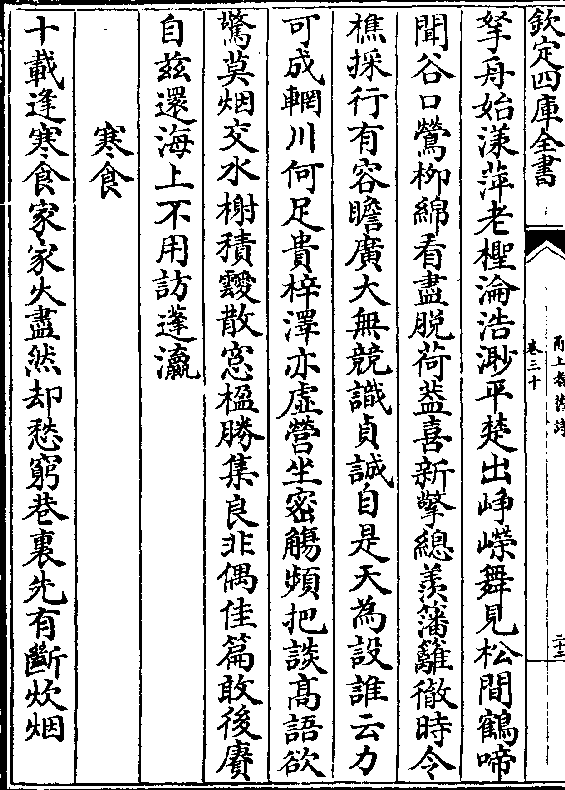 欽定四庫全書
卷三十
拏舟始漾萍老檉淪浩渺平楚出崢嶸舞見松間鶴啼
聞谷口鶯栁綿看盡脱荷葢喜新擎總羨籓籬徹時令
樵採行有容瞻廣大無競識貞誠自是天為設誰云力
可成輞川何足貴梓澤亦虚營坐宻觴頻把談髙語欲
驚莫烟交水榭積靉散窓楹勝集良非偶佳篇敢後賡
自兹還海上不用訪蓬瀛
寒食
十載逢寒食家家火盡然却愁窮巷裏先有斷炊烟